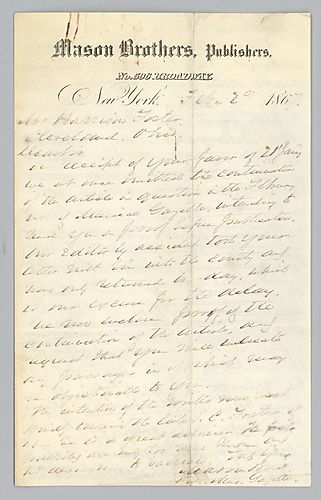 Mason Brothers, Publishers,
No. 596 BROADWAY.
New York, Feb. 2d 1867
Mr Harrison Foster,
Cleveland, Ohio.
Dear Sir
On receipt of your favor of 21st Jan'y
we at once omitted the continuation
of the article in question in the Febru-
no. of Musical Gazette, intending to
send you a proof before publication.
Our Editor by accident took your
letter with him into the country and
has only returned to-day, which
is our excuse for the delay.
We now enclose proof of the
continuation of the article, and
request that you will indicate
any passage in it which may
be objectionable to you.
The intention of the writer was not
toward the late S. C. Foster
he is a great admirer